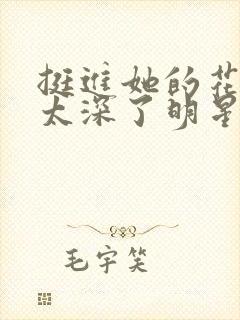 挺进她的花
太深了明星
毛宇笑